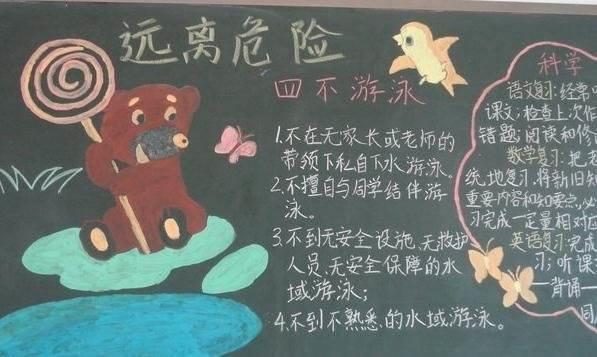 远离危险
四不游泳
1.不在无家长或老师的
带领下私自下水游泳。
2.不擅自与同学结伴游
泳。
3.不到无安全设施、无救护
人员、无安全保障的水
域游泳;
4.不到不熟悉的水域游泳。
科学
语文复习:经常
课文;检查上次作
错题;阅读和修
数学复习:把老
统地复习.将新旧知
重要内容和知要点,必
习完成一定量相对应
英语复习:完成
习;听课
背诵一
同